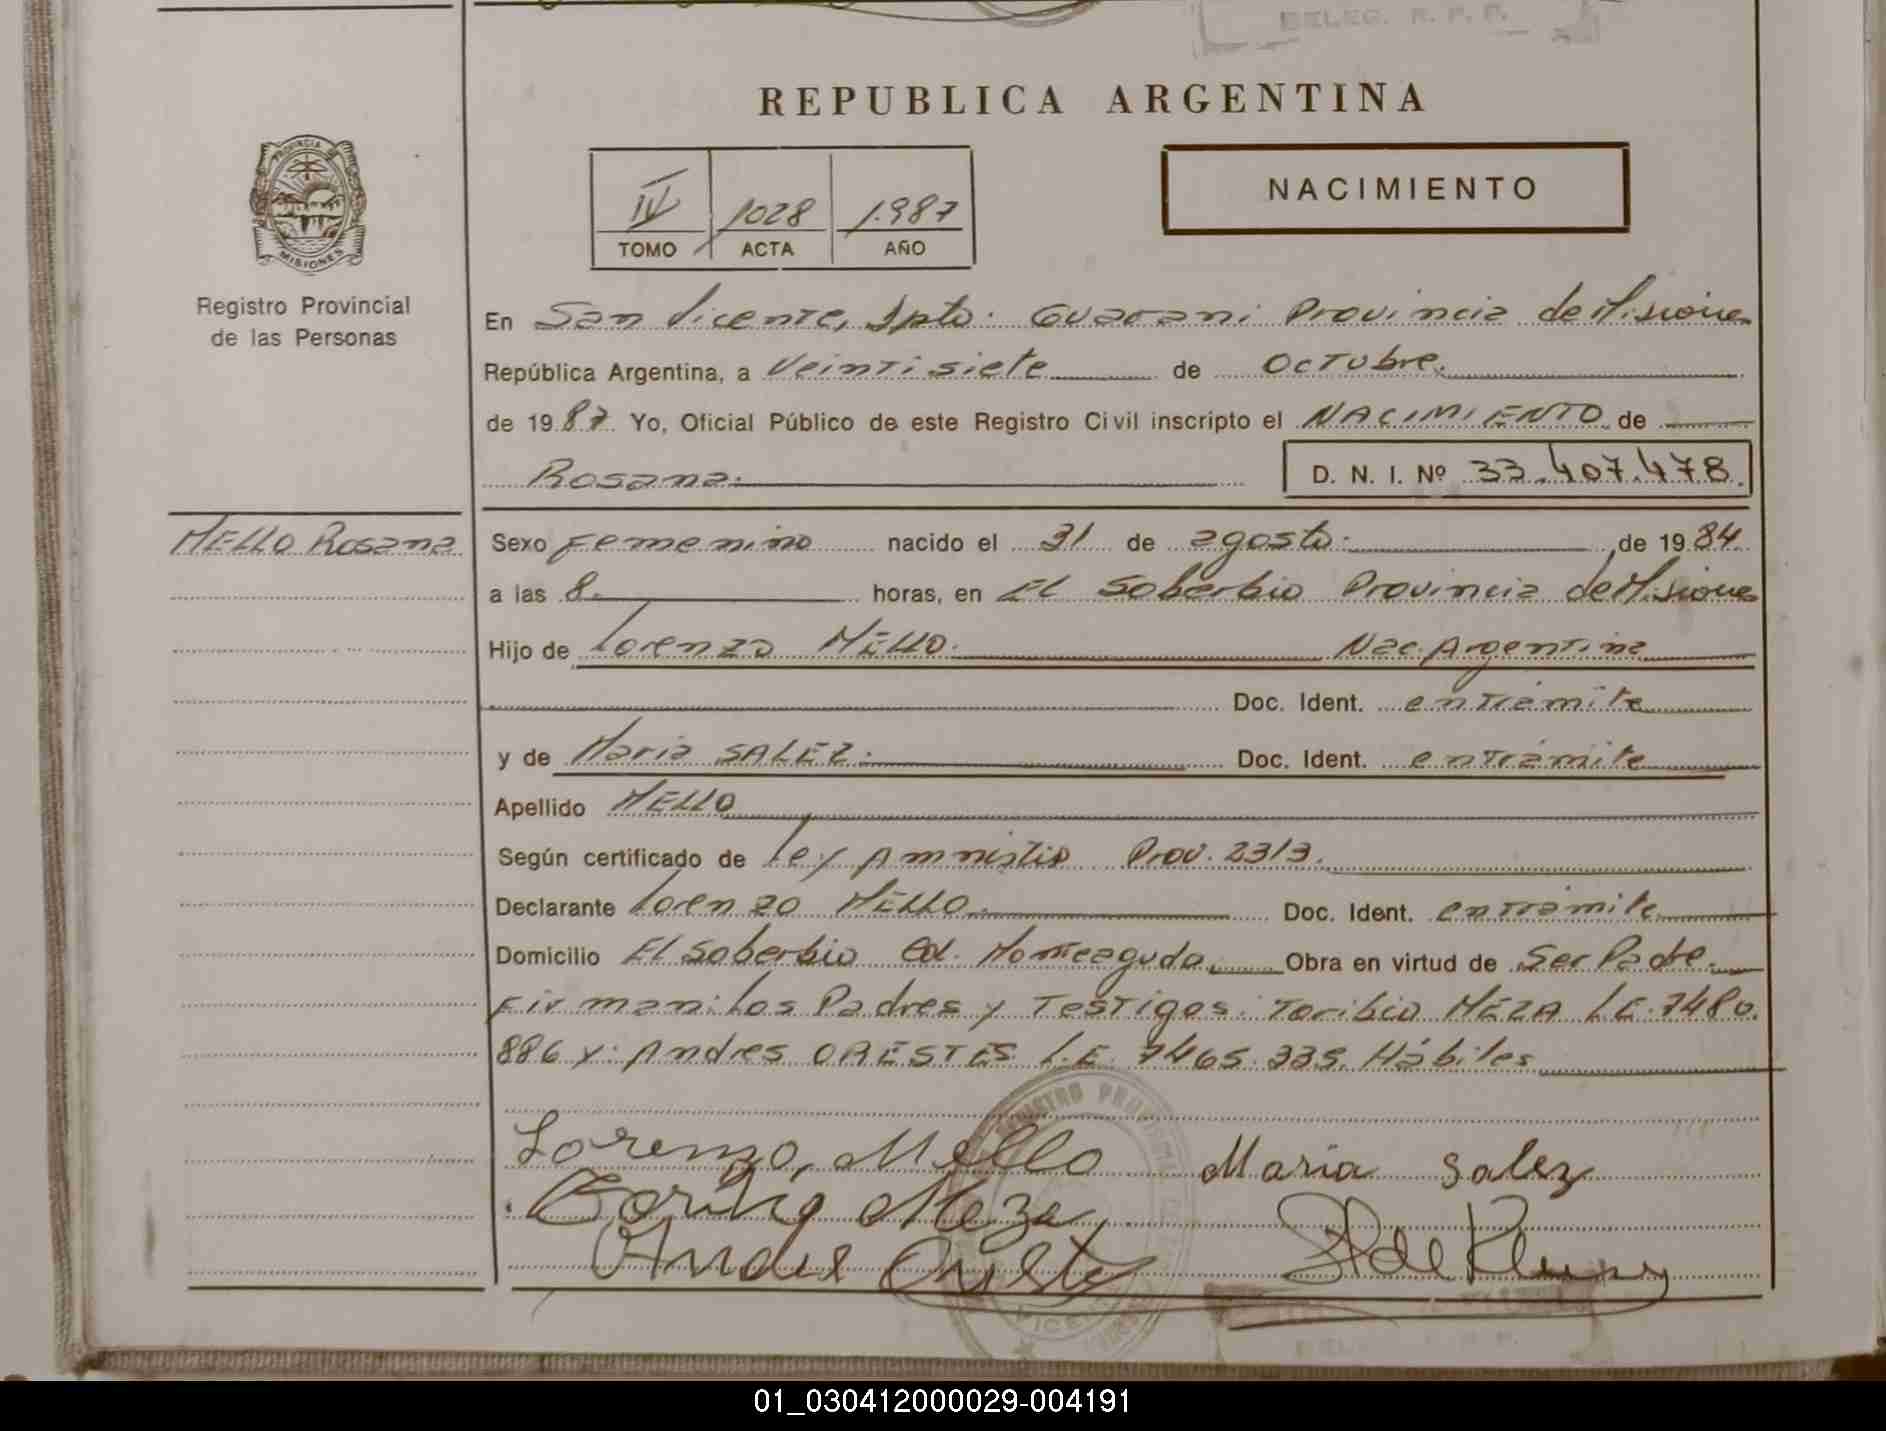 BELEG. R. P. P.
REPUBLICA ARGENTINA
PROVINCIA DE
MISIONES
Registro Provincial
de las Personas
IV 1028 1.987
TOMO ACTA AÑO
NACIMIENTO
En San Vicente, Dpto. Guarani Provincia de Misiones
República Argentina, a Veintisiete de Octubre.
de 1987. Yo, Oficial Público de este Registro Civil inscripto el NACIMIENTO de
Rosana. D. N. I. Nº 33.407.478.
MELLO Rosana
Sexo Femenino nacido el 31 de agosto. de 1984.
a las 8. horas, en El Soberbio Provincia de Misiones
Hijo de Lorenzo MELLO. Nac. Argentina
Doc. Ident. en trámite
y de Maria SALEZ. Doc. Ident. en trámite
Apellido MELLO
Según certificado de Ley Amnistia Prov. 2313.
Declarante Lorenzo MELLO. Doc. Ident. en trámite
Domicilio El Soberbio Col. Monteagudo. Obra en virtud de Ser Padre.
Firman: los Padres y Testigos: Toribio MEZA L.E. 7480.
886 y: Andres ORESTES L.E. 7465.339. Hábiles
Lorenzo, Mello Maria Salez
Toribio Meza
Andre Oreste
01_030412000029-004191